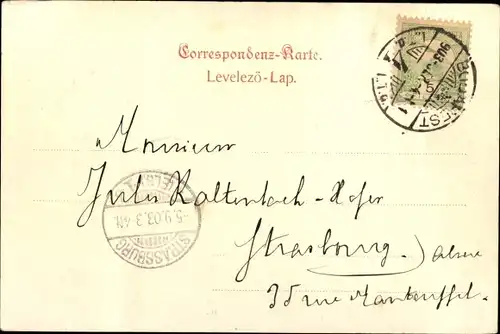 Correspondenz-Karte.
Levelező-Lap.
BUDAPEST
903
Monsieur
Jules Kaltenbach-Hofer
STRASSBURG
5.9.03. 3-4N.
Strasbourg. Alsace
35 rue Manteuffel.